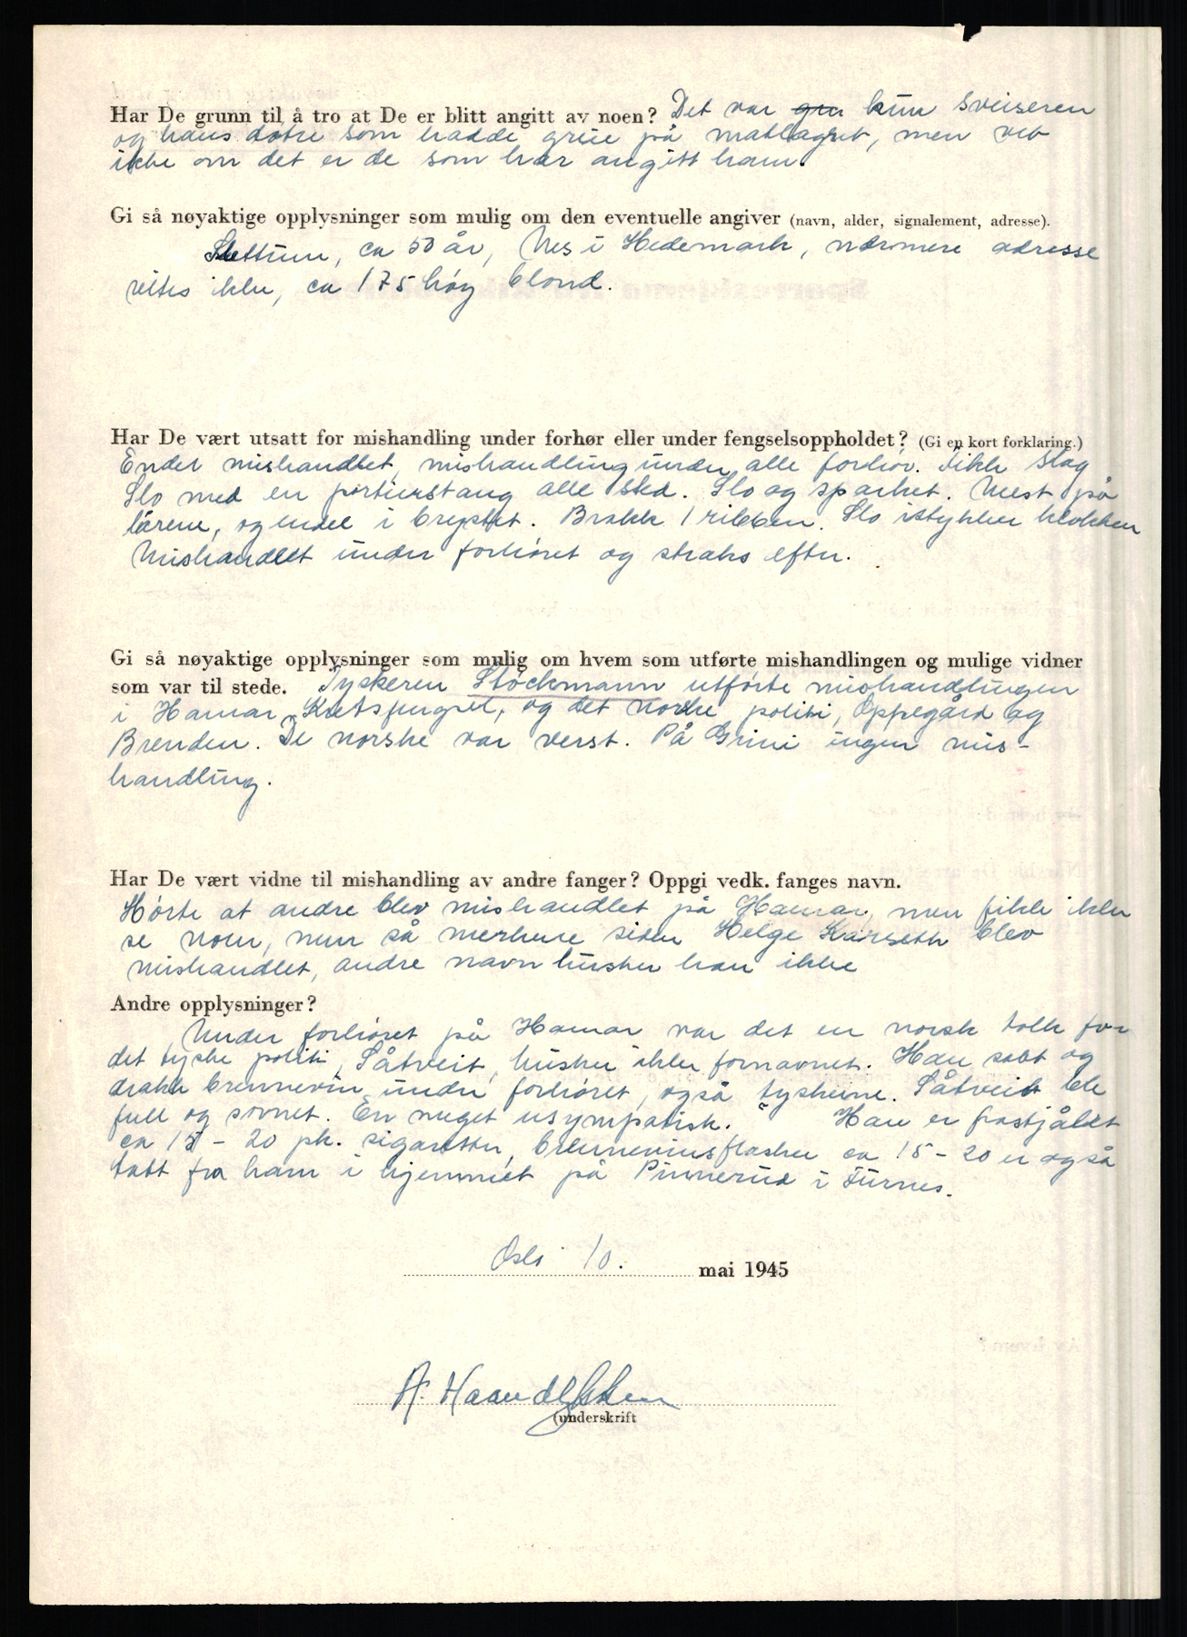 Har De grunn til å tro at De er blitt angitt av noen? Det var kun sveiseren
og hans døtre som hadde greie på matlagret, men vet
ikke om det er de som har angitt ham.
Gi så nøyaktige opplysninger som mulig om den eventuelle angiver (navn, alder, signalement, adresse).
Slettum, ca 50 år, Nes i Hedemark, nærmere adresse
vites ikke, ca 175 høy blond.
Har De vært utsatt for mishandling under forhør eller under fengselsoppholdet? (Gi en kort forklaring.)
Endel mishandlet, mishandling under alle forhør. Fikk slag
Slo med en portierstang alle sted. Slo og sparket. Mest på
lårene, og endel i brystet. Brakk 1 ribben. Slo istykker klokken
Mishandlet under forhøret og straks efter.
Gi så nøyaktige opplysninger som mulig om hvem som utførte mishandlingen og mulige vidner
som var til stede. Tyskeren Stockmann utførte mishandlingen
i Hamar Kretsfengsel, og det norske politi, Oppegård og
Brenden. De norske var verst. På Grini ingen mis-
handling.
Har De vært vidne til mishandling av andre fanger? Oppgi vedk. fanges navn.
Hørte at andre blev mishandlet på Hamar, men fikk ikke
se noen, men så merkene siden Helge Karseth blev
mishandlet, andre navn husker han ikke
Andre opplysninger?
Under forhøret på Hamar var det en norsk tolk for
det tyske politi, Såtveit, husker ikke fornavnet. Han satt og
drakk brennevin under forhøret, også tyskerne. Såtveit ble
full og sovnet. En meget usympatisk. Han er frastjålet
ca 15 - 20 pk. sigaretter, brennevinsflasker ca 15 - 20 er også
tatt fra ham i hjemmet på Pinnerud i Furnes.
Oslo 10. mai 1945
A. Haandlykken
(underskrift